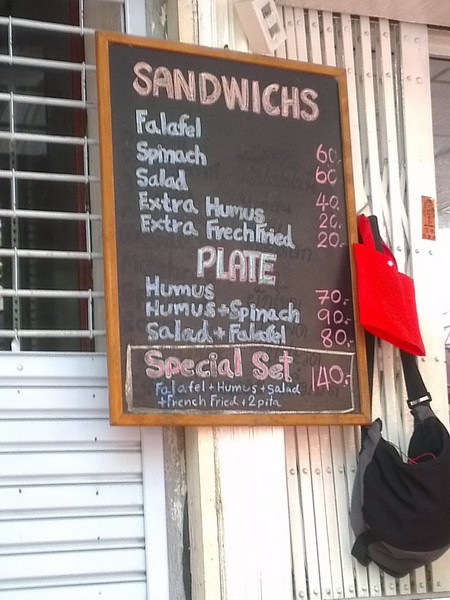 SANDWICHS
Falafel 60.-
Spinach 60
Salad 40.
Extra Humus 20.-
Extra FrechFried 20.-
PLATE
Humus 70.-
Humus+Spinach 90.-
Salad+Falafel 80.-
Special Set 140.-
Falafel+Humus+Salad
+French Fried+2pita